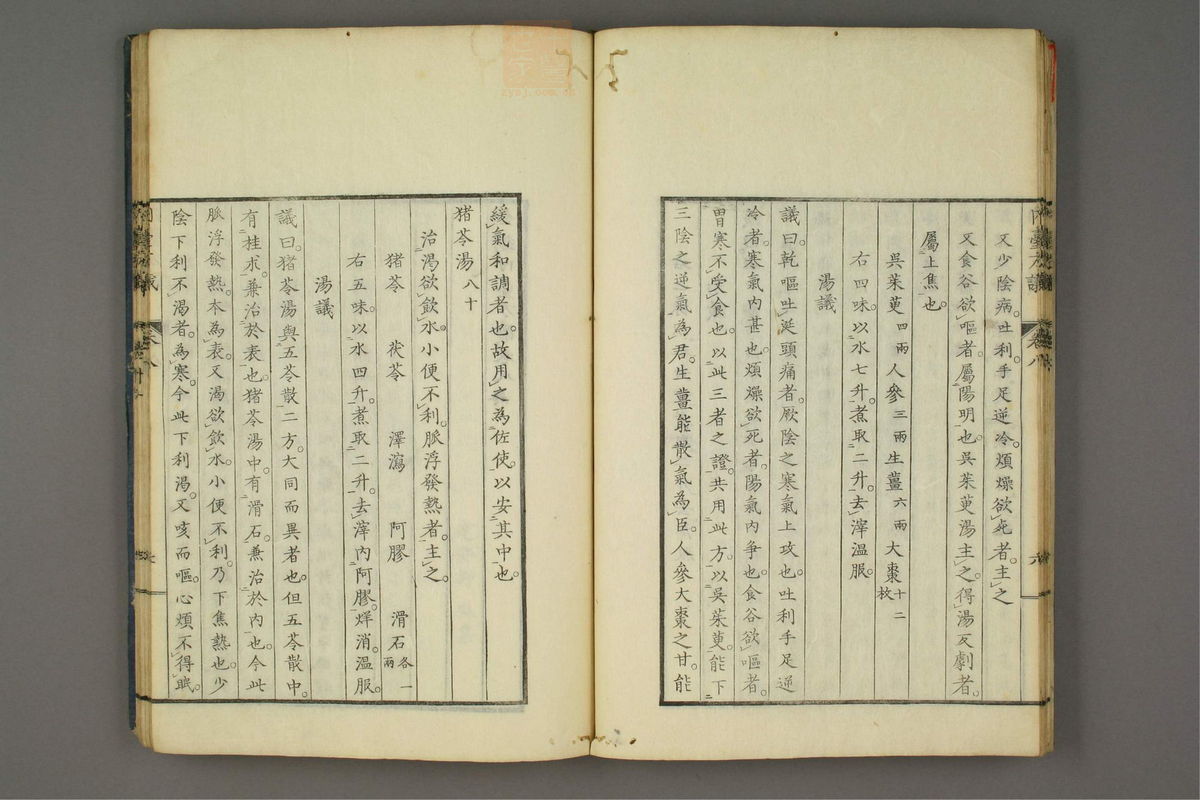 又少陰病吐利手足逆冷煩燥欲死者主之
又食谷欲嘔者屬陽明也吳茱萸湯主之得湯反劇者
屬上焦也
吳茱萸四兩人參三兩生薑六兩大棗十二枚
右四味以水七升煮取二升去滓温服
湯議
議曰乾嘔吐涎頭痛者厥陰之寒氣上攻也吐利手足逆
冷者寒氣內甚也煩燥欲死者陽氣內争也食谷欲嘔者
胃寒不受食也以此三者之證共用此方以吳茱萸能下
三陰之逆氣為君生薑能散氣為臣人參大棗之甘能
緩氣和調者也故用之為佐使以安其中也
猪苓湯八十
治渴欲飲水小便不利脈浮發熱者主之
猪苓 茯苓 澤瀉 阿膠 滑石各一兩
右五味以水四升煮取二升去滓內阿膠烊消温服
湯議
議曰猪苓湯與五苓散二方大同而異者也但五苓散中
有桂朮兼治於表也猪苓湯中有滑石兼治於內也今此
脈浮發熱本為表又渴欲飲水小便不利乃下焦熱也少
陰下利不渴者為寒今此下利渴又咳而嘔心煩不得眠
zysj.com.cn